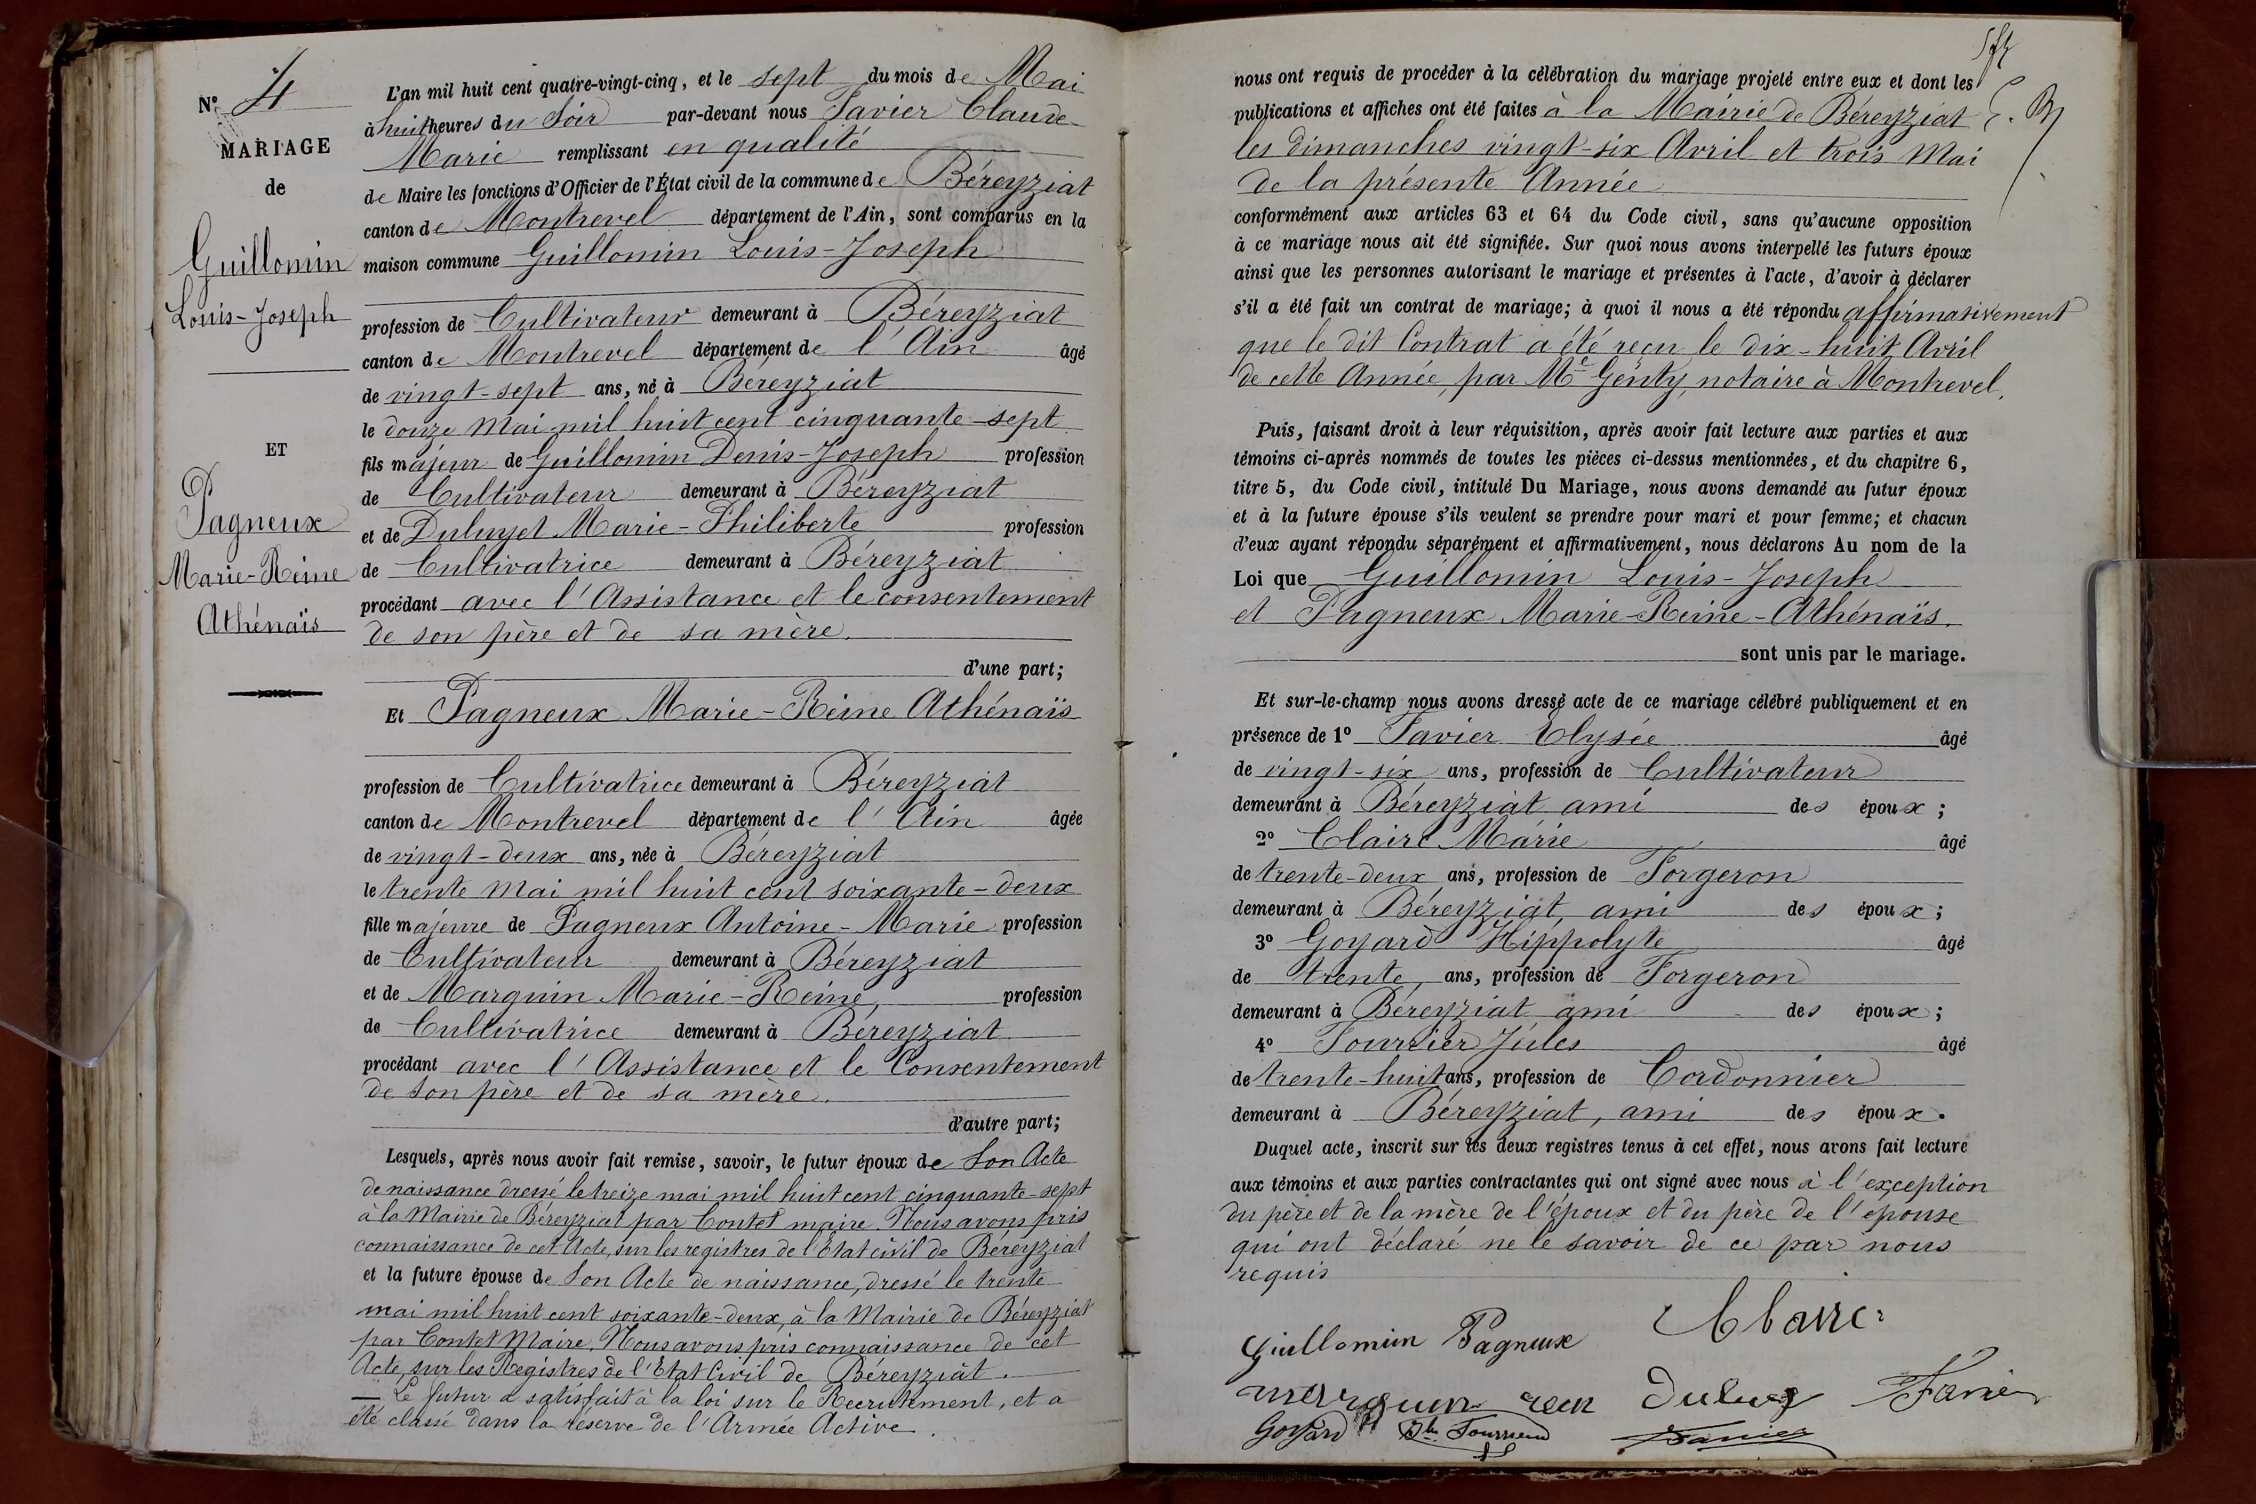 N° 4
MARIAGE
de
Guillomin
Louis-Joseph
ET
Pagneux
Marie-Reine
Athénaïs
L'an mil huit cent quatre-vingt-cinq, et le sept du mois de Mai
à huit heures du Soir par-devant nous Favier Claude
Marie remplissant en qualité
de Maire les fonctions d'Officier de l'État civil de la commune de Béreyziat
canton de Montrevel département de l'Ain, sont comparus en la
maison commune Guillomin Louis-Joseph
profession de Cultivateur demeurant à Béreyziat
canton de Montrevel département de l'Ain âgé
de vingt-sept ans, né à Béreyziat
le douze Mai mil huit cent cinquante-sept
fils majeur de Guillomin Denis-Joseph profession
de Cultivateur demeurant à Béreyziat
et de Duluyet Marie-Philiberte profession
de Cultivatrice demeurant à Béreyziat
procédant avec l'Assistance et le consentement
de son père et de sa mère.
d'une part;
Et Pagneux Marie-Reine Athénaïs
profession de Cultivatrice demeurant à Béreyziat
canton de Montrevel département de l'Ain âgée
de vingt-deux ans, née à Béreyziat
le trente Mai mil huit cent soixante-deux
fille majeure de Pagneux Antoine-Marie profession
de Cultivateur demeurant à Béreyziat
et de Marguin Marie-Reine, profession
de Cultivatrice demeurant à Béreyziat
procédant avec l'Assistance et le Consentement
de son père et de sa mère.
d'autre part;
Lesquels, après nous avoir fait remise, savoir, le futur époux de Son Acte
de naissance dressé le treize mai mil huit cent cinquante-sept
à la Mairie de Béreyziat par Contet maire. Nous avons pris
connaissance de cet Acte, sur les registres de l'Etat civil de Béreyziat
et la future épouse de Son Acte de naissance, dressé le trente
mai mil huit cent soixante-deux, à la Mairie de Béreyziat
par Contet Maire. Nous avons pris connaissance de cet
Acte, sur les Registres de l'Etat Civil de Béreyziat.
— Le futur a satisfait à la loi sur le Recrutement, et a
été classé dans la réserve de l'Armée Active.
nous ont requis de procéder à la célébration du mariage projeté entre eux et dont les
publications et affiches ont été faites à la Mairie de Béreyziat
les dimanches vingt-six Avril et trois Mai
de la présente Année
conformément aux articles 63 et 64 du Code civil, sans qu'aucune opposition
à ce mariage nous ait été signifiée. Sur quoi nous avons interpellé les futurs époux
ainsi que les personnes autorisant le mariage et présentes à l'acte, d'avoir à déclarer
s'il a été fait un contrat de mariage; à quoi il nous a été répondu affirmativement
que le dit Contrat a été reçu le dix-huit Avril
de cette Année, par Me Genty, notaire à Montrevel.
Puis, faisant droit à leur réquisition, après avoir fait lecture aux parties et aux
témoins ci-après nommés de toutes les pièces ci-dessus mentionnées, et du chapitre 6,
titre 5, du Code civil, intitulé Du Mariage, nous avons demandé au futur époux
et à la future épouse s'ils veulent se prendre pour mari et pour femme; et chacun
d'eux ayant répondu séparément et affirmativement, nous déclarons Au nom de la
Loi que Guillomin Louis-Joseph
et Pagneux Marie-Reine-Athénaïs.
sont unis par le mariage.
Et sur-le-champ nous avons dressé acte de ce mariage célébré publiquement et en
présence de 1° Favier Elysée âgé
de vingt-six ans, profession de Cultivateur
demeurant à Béreyziat ami des époux;
2° Claire Marie âgé
de trente-deux ans, profession de Forgeron
demeurant à Béreyziat, ami des époux;
3° Goyard Hippolyte âgé
de trente, ans, profession de Forgeron
demeurant à Béreyziat ami des époux;
4° Fourrier Jules âgé
de trente-huit ans, profession de Cordonnier
demeurant à Béreyziat, ami des époux.
Duquel acte, inscrit sur les deux registres tenus à cet effet, nous avons fait lecture
aux témoins et aux parties contractantes qui ont signé avec nous à l'exception
du père et de la mère de l'époux et du père de l'épouse
qui ont déclaré ne le savoir de ce par nous
requis
Guillomin Pagneux Claire
marguin Favier
Goyard Favier